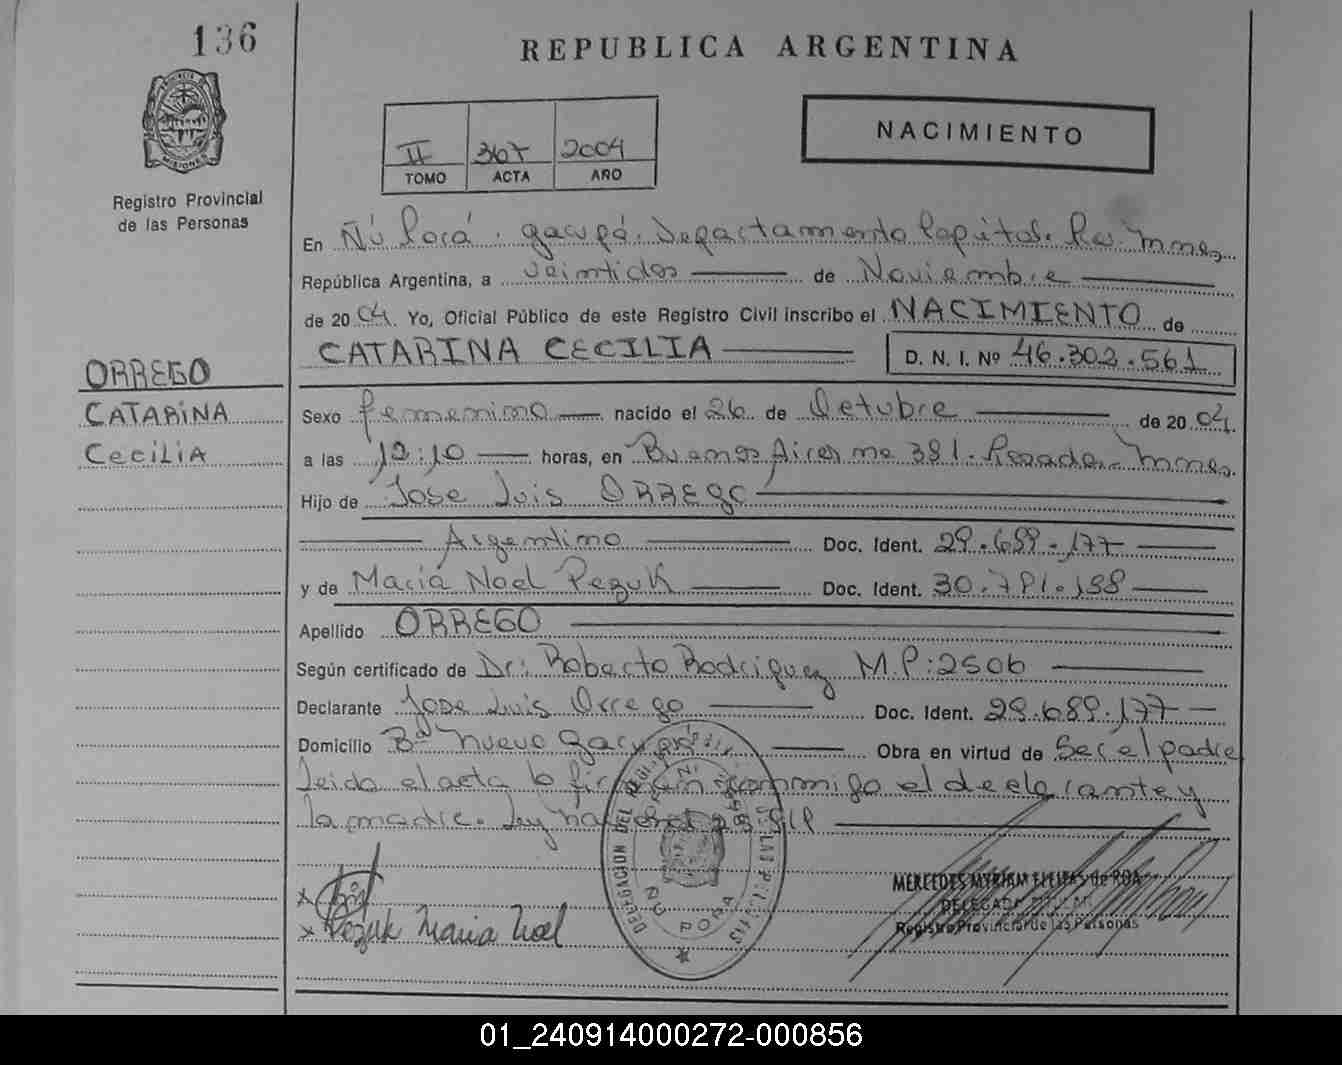 136
REPUBLICA ARGENTINA
PROVINCIA DE
MISIONES
Registro Provincial
de las Personas
II 367 2004
TOMO ACTA AÑO
NACIMIENTO
En Ñú Porá. Garupá. Departamento Capital. Pcia. Mnes.
República Argentina, a veintidos de Noviembre
de 2004. Yo, Oficial Público de este Registro Civil inscribo el NACIMIENTO de
CATARINA CECILIA D. N. I. Nº 46.302.561
ORREGO
CATARINA
CECILIA
Sexo femenino nacido el 26 de Octubre de 2004.
a las 12:10 horas, en Buenos Aires no 381. Posadas. Mnes.
Hijo de Jose Luis ORREGO
Argentino Doc. Ident. 29.689.177
y de Maria Noel Pezuk Doc. Ident. 30.791.138
Apellido ORREGO
Según certificado de Dr: Roberto Rodriguez M.P:2506
Declarante Jose Luis Orrego Doc. Ident. 29.689.177
Domicilio Bº nuevo Garupá Obra en virtud de Ser el padre
leida el acta la firman conmigo el declarante y
la madre. Ley nacional
DELEGACION DEL
ÑU PORA
x
x Pezuk Maria Noel
MERCEDES MYRIAM de ROA
DELEGADA
Registro Provincial de las Personas
01_240914000272-000856